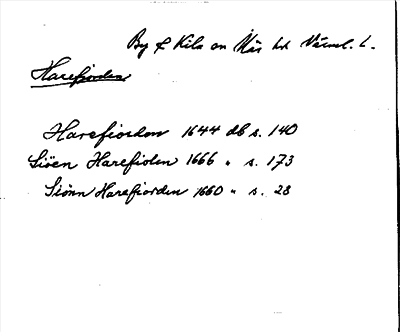 By & Kila sn Näs hd Värml. L.
Harefjorden
Harefiorden 1644 db s. 140
Siöen Harefiolen 1666 " s. 173
Siönn Harefiorden 1660 " s. 28